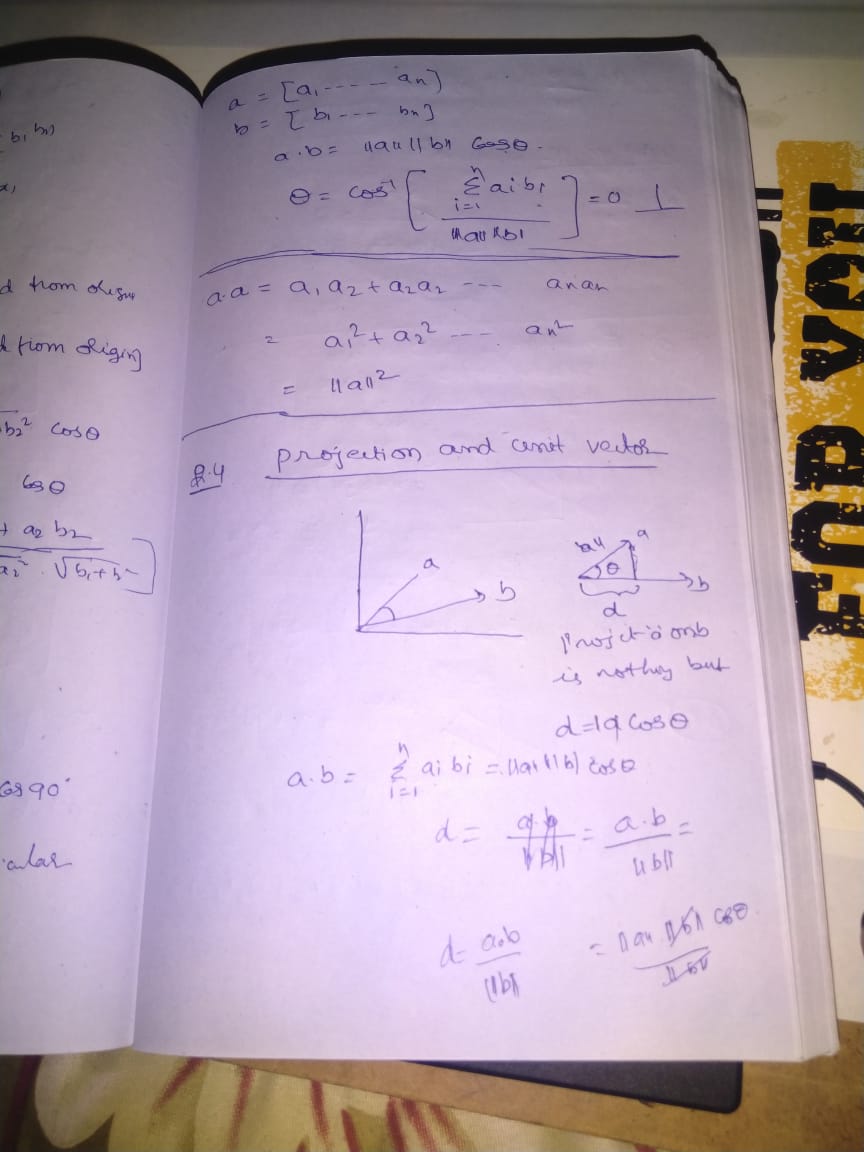 b₁ b₂)
d from origin
d from Origin)
b₂² cosθ
cosθ
+ a₂ b₂
a₂² . √b₁+b
Cos 90°
icular
a = [a₁ ----- an]
b = [ b₁ --- bn]
a.b = ||a|| ||b|| Cosθ.
θ = cos⁻¹ [ n Σ i=1 ai bi / ||a|| ||b|| ] = 0 ⊥
a.a = a₁ a₂ + a₂a₂ --- anan
= a₁² + a₂² --- an²
= ||a||²
2.4 projection and unit vector
a
b
||a|| a
θ
b
d
Projctō onb
is nothing but
d=||a|| cosθ
a.b = n Σ i=1 ai bi = ||a|| ||b|| cosθ
d = = a.b / ||b|| =
d = a.b / ||b|| = ||a|| ||b|| cosθ / ||b||
FOR YOU